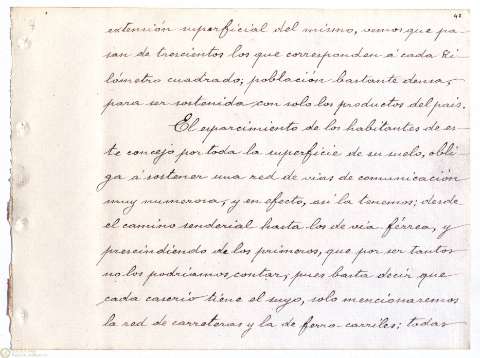 42
extensión superficial del mismo, vemos que pa-
san de trescientos los que corresponden á cada Ki-
lómetro cuadrado; población bastante densa,
para ser sostenida con solo los productos del pais.
El esparcimiento de los habitantes de es-
te concejo por toda la superficie de su suelo, obli-
ga á sostener una red de vias de comunicación
muy numerosa, y en efecto, asi la tenemos: desde
el camino senderial hasta los de via férrea, y
prescindiendo de los primeros, que por ser tantos
no los podriamos contar, pues basta decir que
cada caserio tiene el suyo, solo mencionaremos
la red de carreteras y la de ferro-carriles: todas